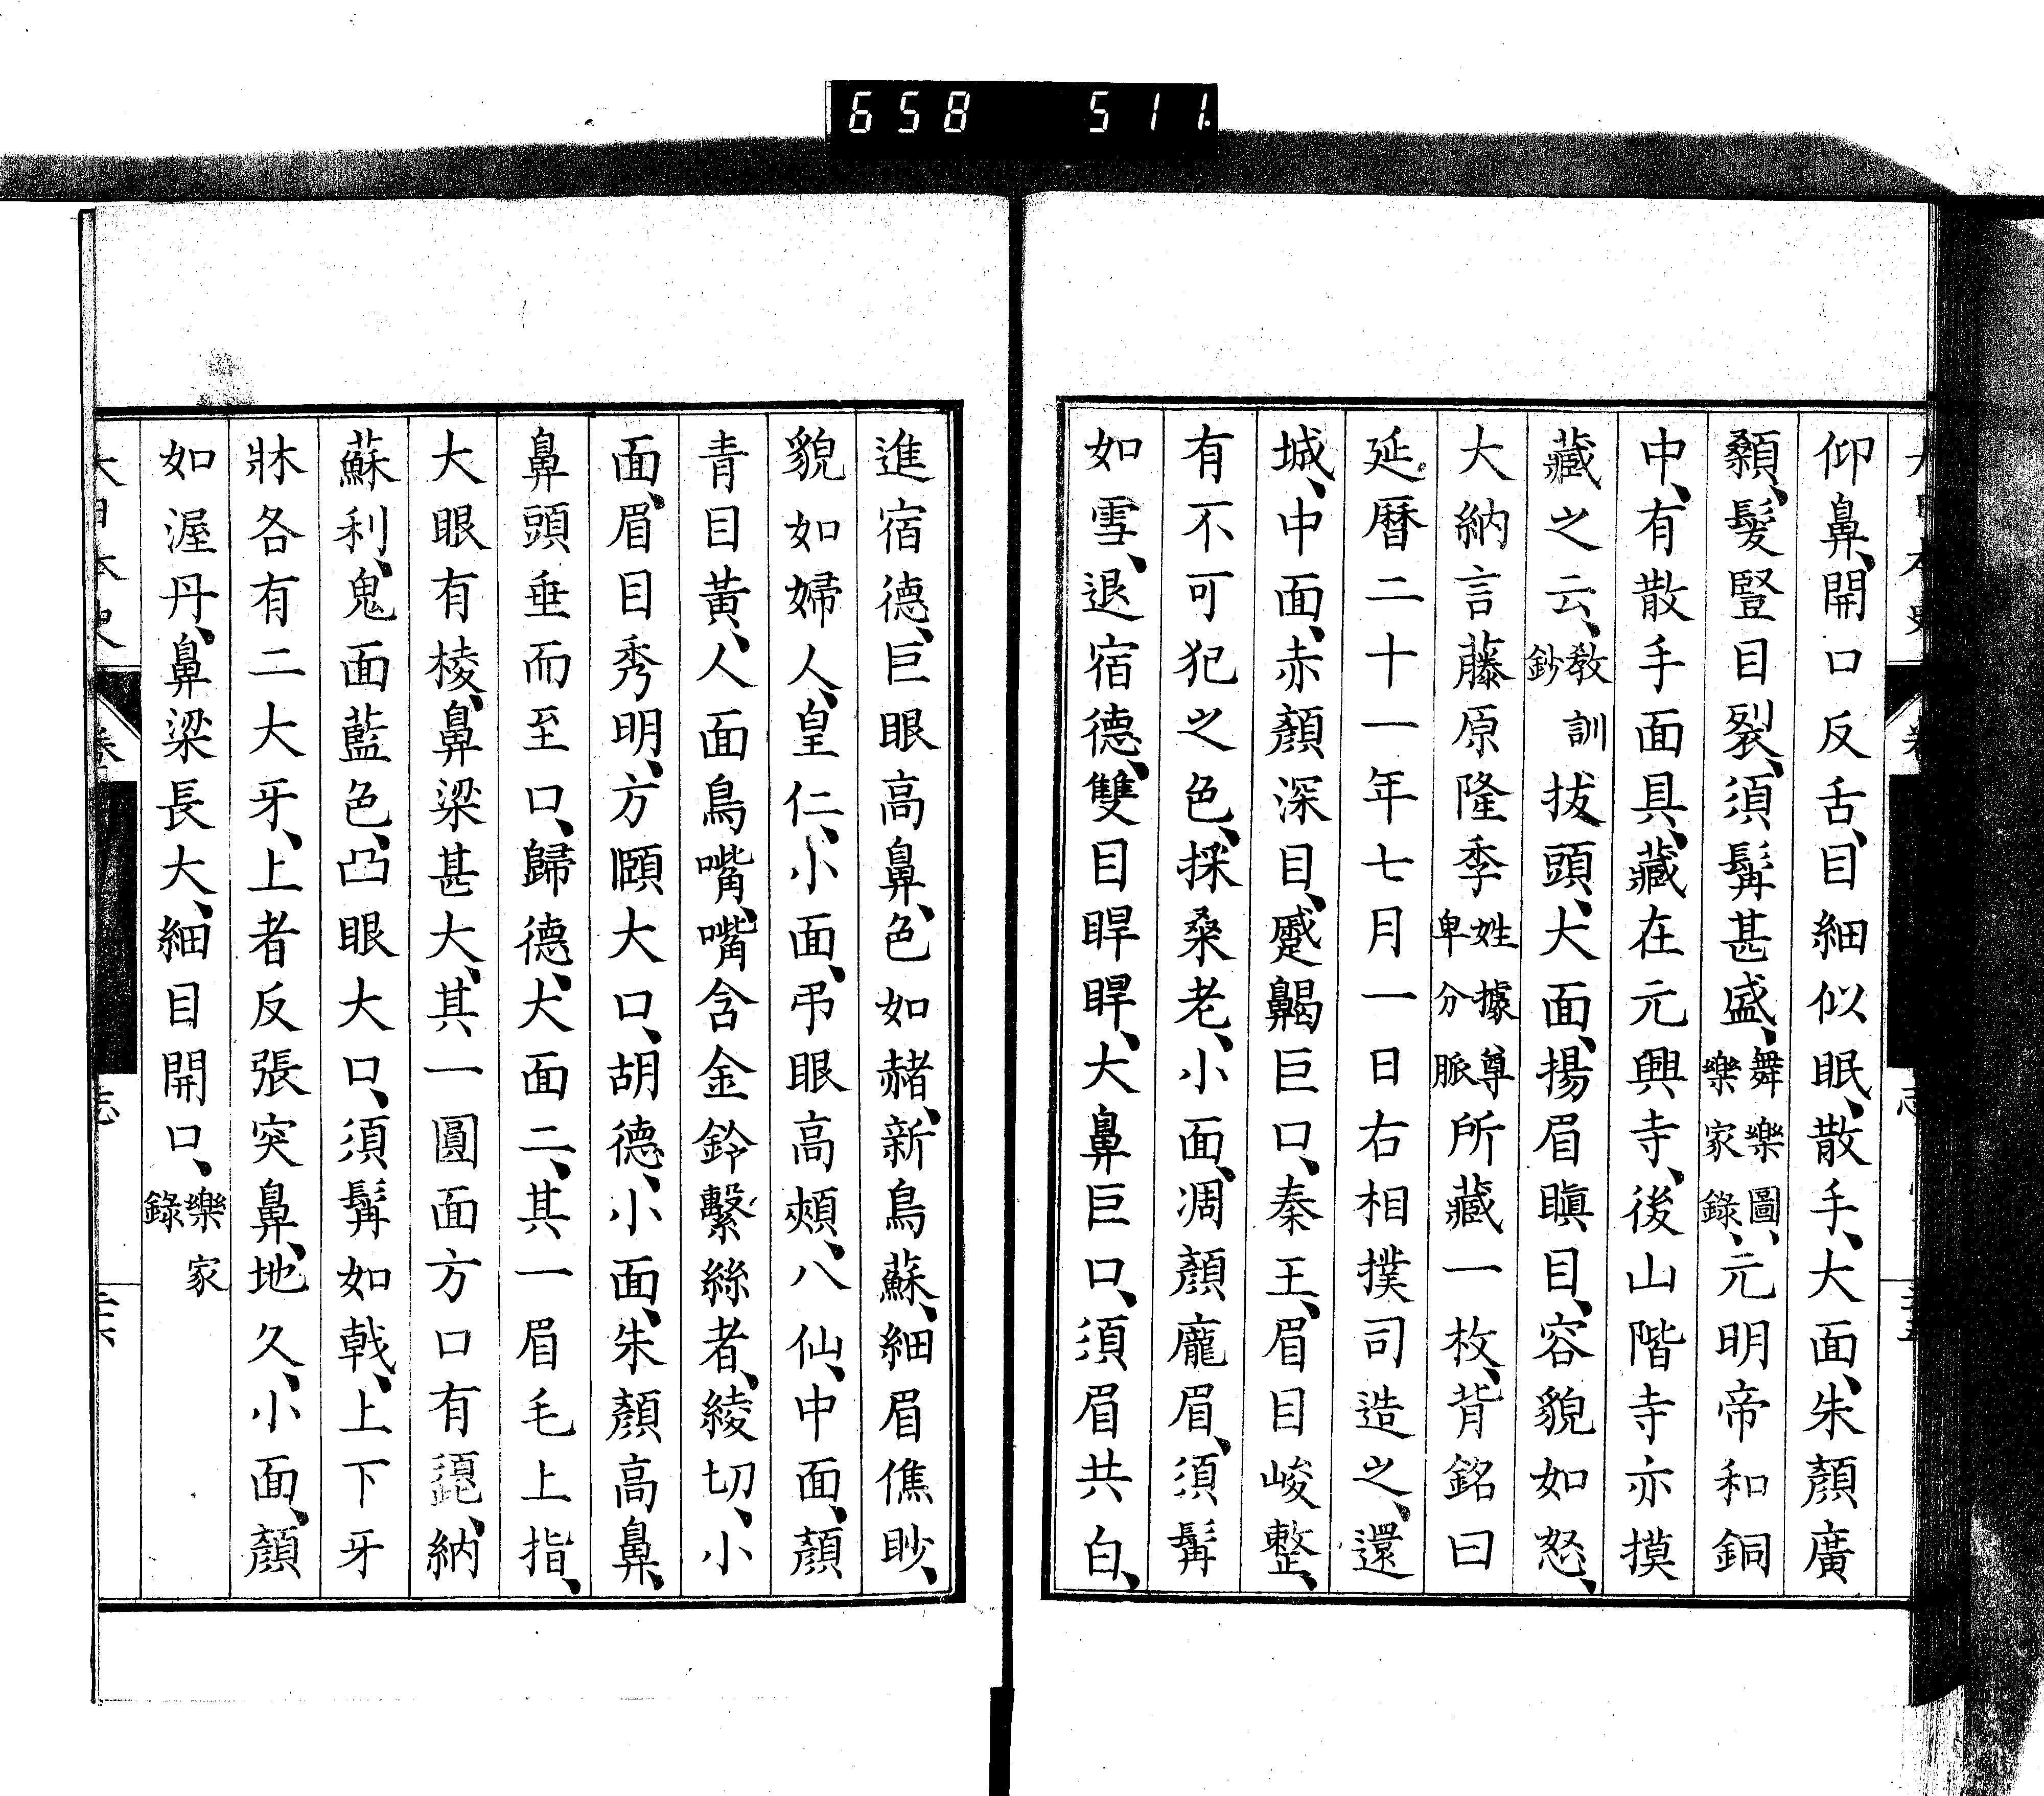 658 511
仰鼻、開口反舌、目細似眠、散手、大面、朱顏廣
顙、髮豎目裂、須髯甚盛、舞樂圖、樂家錄、元明帝和銅
中、有散手面具、藏在元興寺、後山階寺亦摸
藏之云、教訓鈔拔頭、犬面、揚眉瞋目、容貌如怒、
大納言藤原隆季姓據尊卑分脈所藏一枚、背銘曰
延曆二十一年七月一日右相撲司造之、還
城、中面、赤顏深目、蹙鼻曷巨口、秦王、眉目峻整、
有不可犯之色、採桑老、小面、凋顏龐眉、須髯
如雪、退宿德、雙目睅睅、大鼻巨口、須眉共白、
進宿德、巨眼高鼻、色如赭、新鳥蘇、細眉僬眇、
貌如婦人、皇仁、小面、弔眼高頰、八仙、中面、顏
青目黃、人面鳥嘴、嘴含金鈴繫絲者、綾切、小
面、眉目秀明、方頤大口、胡德、小面、朱顏高鼻、
鼻頭垂而至口、歸德、犬面二、其一眉毛上指、
大眼有棱、鼻梁甚大、其一圓面方口有髭、納
蘇利、鬼面藍色、凸眼大口、須髯如戟、上下牙
牀各有二大牙、上者反張突鼻、地久、小面、顏
如渥丹、鼻梁長大、細目開口、樂家錄
大日本史 卷 志